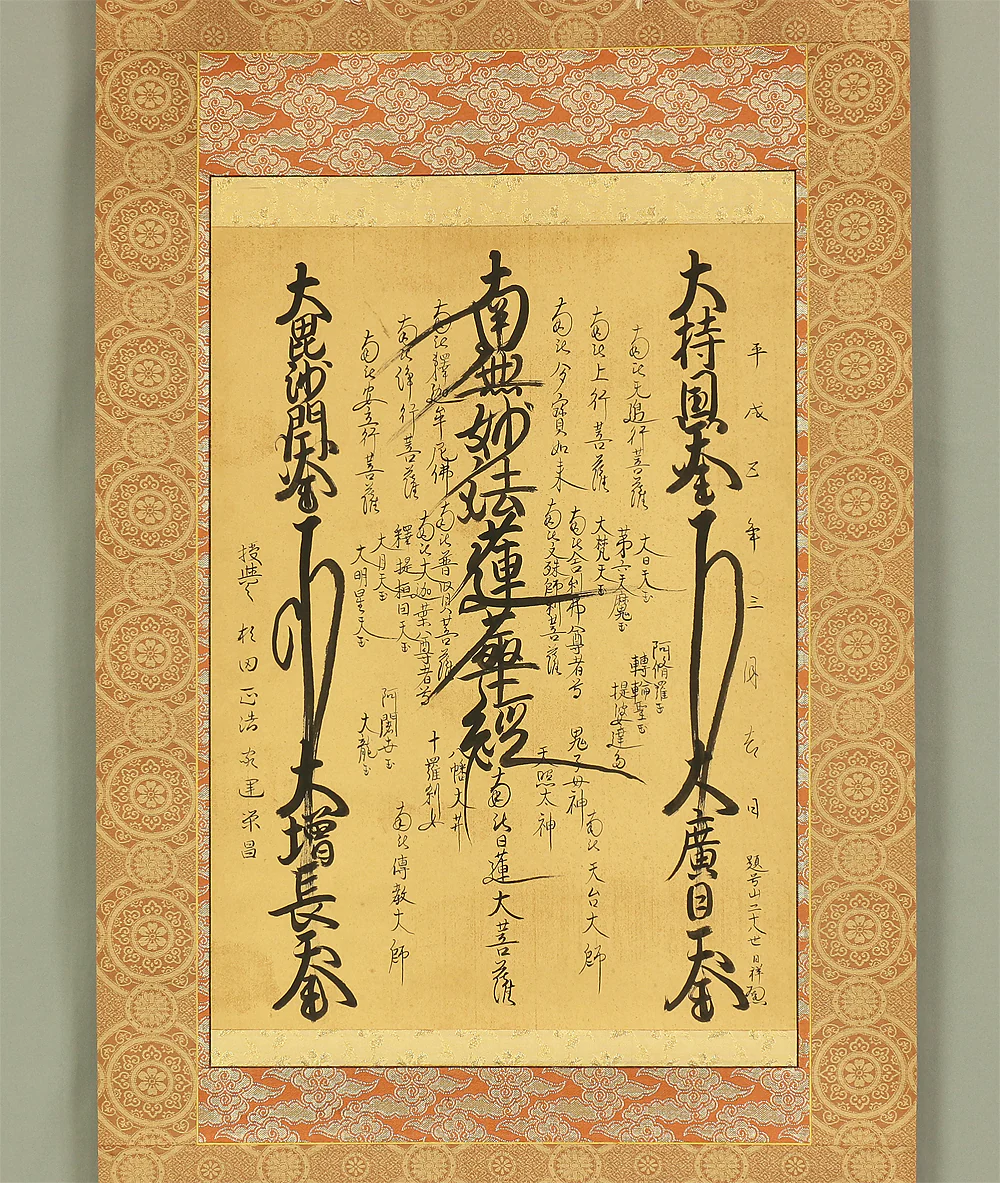 平成 年三月吉日
大持国天王
大廣目天王
南無无邊行菩薩
南無上行菩薩
南無多寳如来
大日天王
第六天魔王
大梵天王
南無舎利弗尊者等
南無文殊師利菩薩
阿脩羅王
轉輪聖王
提婆達多
鬼子母神
天照太神
南無天台大師
南無妙法蓮華經
南無日蓮大菩薩
南無釋迦牟尼佛
南無浄行菩薩
南無安立行菩薩
南無普賢菩薩
南無大迦葉尊者等
釋提桓因天王
大月天王
大明星天王
八幡大菩薩
十羅刹女
阿闍世王
大龍王
南無傳教大師
大毘沙門天王
大增長天王
授與之 杉田正浩 家運栄昌